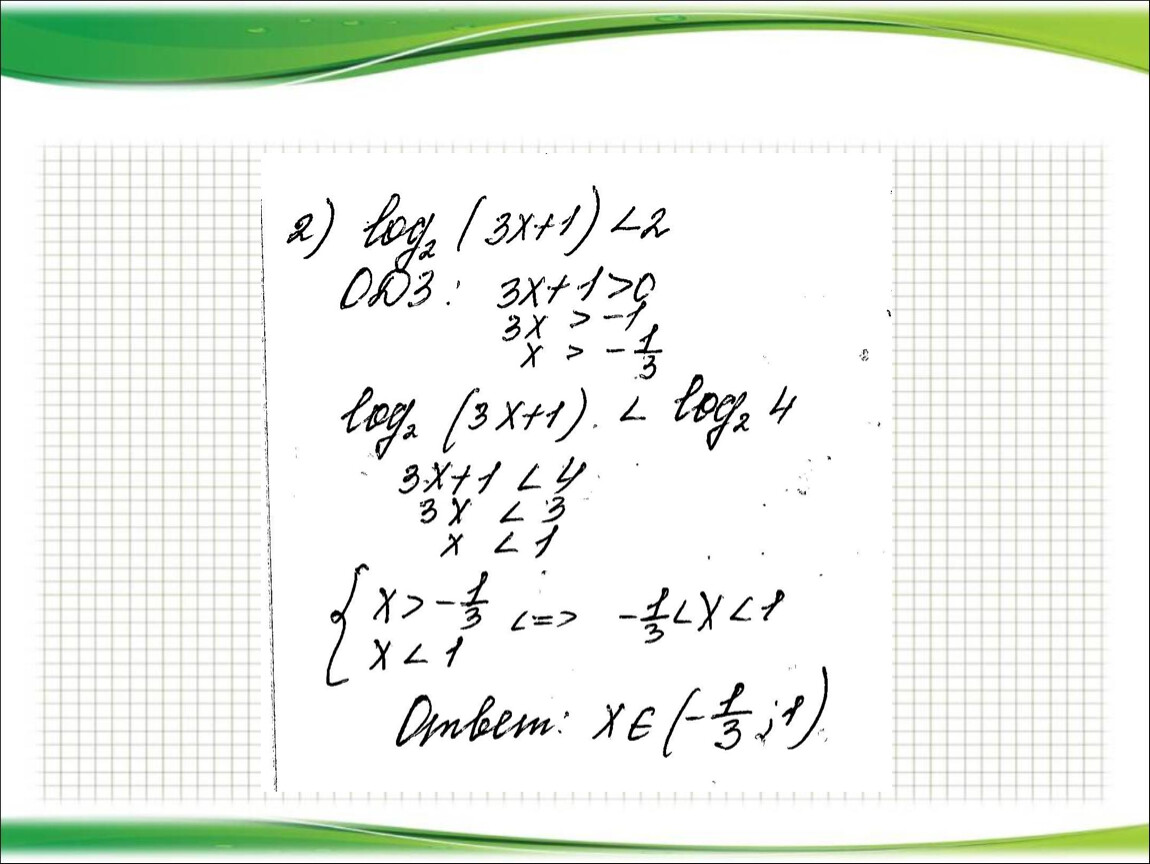 2) log₂ (3x+1) <2
ОДЗ: 3x+1>0
3x > -1
x > -1/3
log₂ (3x+1) < log₂ 4
3x+1 < 4
3x < 3
x < 1
{ x > -1/3 <=> -1/3 < x < 1
x < 1
Ответ: x ∈ (-1/3 ; 1)